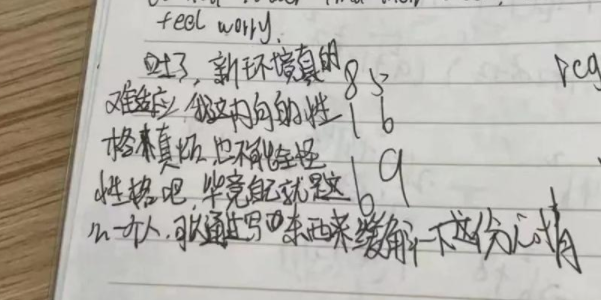 feel worry.
吐了，新环境真的 85
难适应，我这内向的性 16
格来真坏，也不能全怪
性格吧，毕竟自己就是这 69
么一个人，可以通过写东西来缓解一下这份心情
reg